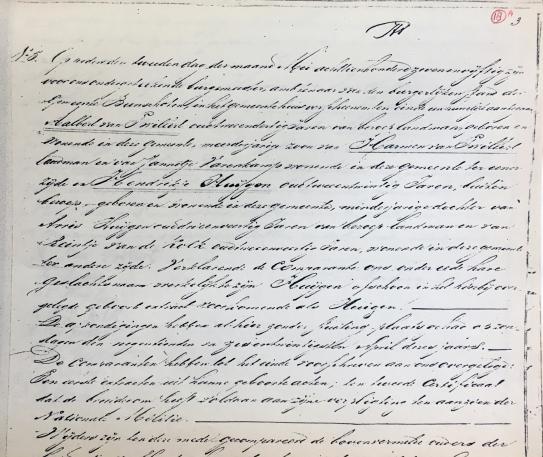 18 A
3
No 5. Op heden den tweeden dag der maand Mei achttienhonderd zevenenvijftig zijn
voor ons ondergeteekende burgemeester, ambtenaar van den burgerlijken stand der
Gemeente Bunschoten, in het gemeentehuis verschenen ten einde een huwelijk aantegaan
Aalbert van Twillert oud tweeendertig Jaren van beroep landman, geboren en
wonende in deze Gemeente, meerderjarige zoon van Harmen van Twillert
landman en van Jannetje Varenkamp wonende in deze gemeente ter eener
zijde en Hendrikje Huijgen oud tweeentwintig Jaren, buiten
beroep, geboren en wonende in deze gemeente, minderjarige dochter van
Huijgen oud Jaren van beroep Landman en van
van de Kolk oud Jaren, wonende in deze gemeente
ter andere zijde. Verklarende de Comparante ons onder eede hare
Geslachtsnaam werkelijk te zijn Huijgen ofschoon in het hierbij over-
gelegde geboorte extract voorkomende als Huigen.
De afkondigingen hebben alhier zonder stuiting plaats gehad op zon-
dagen den negentienden en zesentwintigsten April dezes jaars.
De Comparanten hebben tot het einde voorschreven aan ons overgelegd:
Ten eerste extracten uit hunne geboorteacten; ten tweede Certificaat
dat de bruidegom heeft voldaan aan zijne verpligting ten aanzien der
Nationale Militie.
Wijders zijn ten deze mede gecompareerd de bovenvermelde ouders der